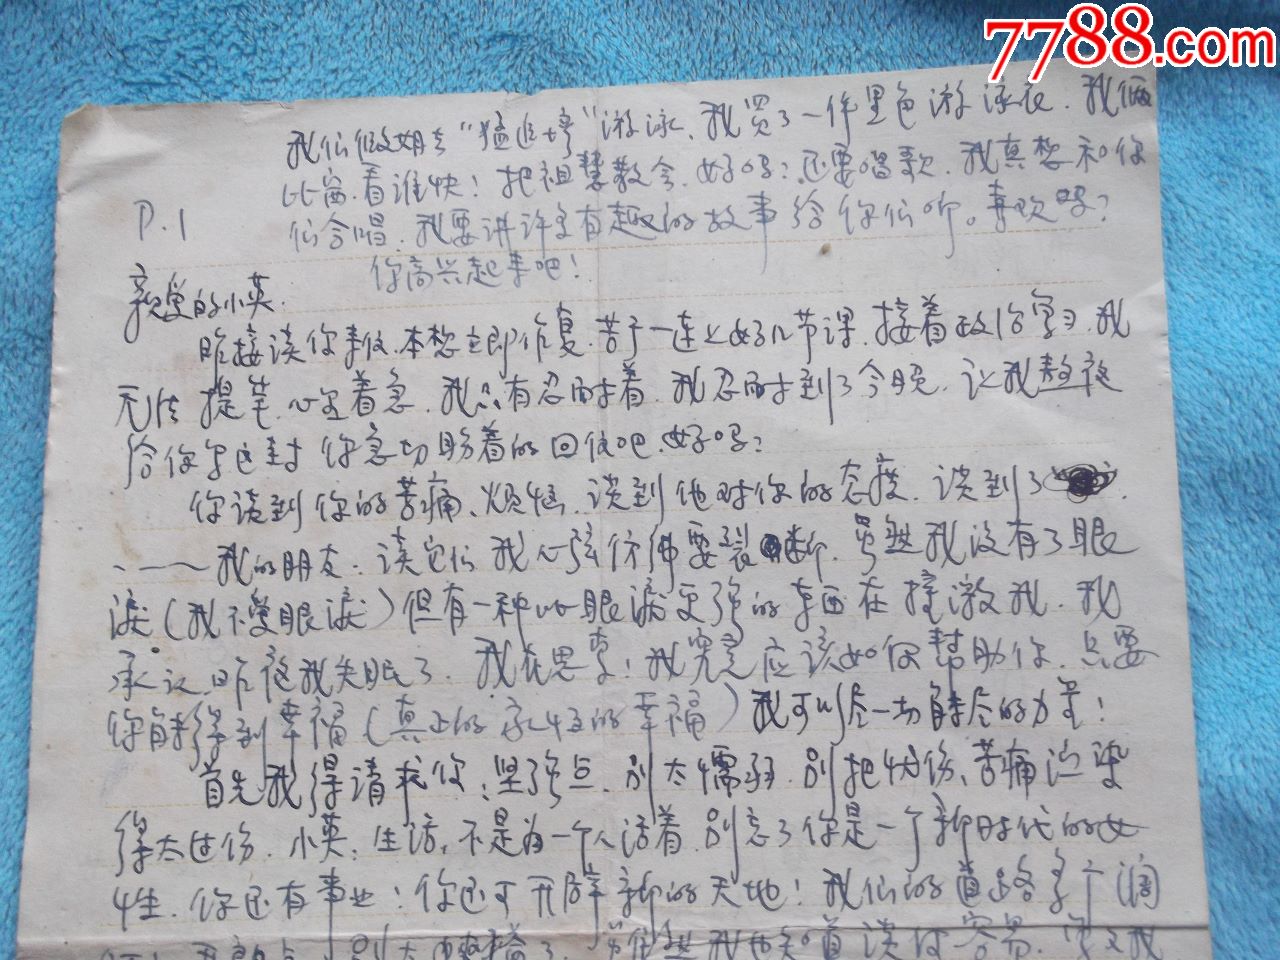 7788.com
我们假期去“猛追塆”游泳.我买了一件黑色游泳衣.我俩
比赛.看谁快!把祖慧教会.好吗?还要唱歌.我真想和你
们合唱.我要讲许多有趣的故事给你们听。喜欢吗?
你高兴起来吧!
P.1
亲爱的小英.
昨接读你来信.本想立即作复.苦于一连上好几节课.接着政治学习.我
无法提笔.心里着急.我只有忍耐着.我忍耐到了今晚.让我熬夜
给你写这封你急切盼着的回信吧.好吗?
你谈到你的苦痛、烦恼.谈到他对你的态度.谈到了
我的朋友.读它们我心弦仿佛要裂断.虽然我没有了眼
泪(我不爱眼泪)但有一种比眼泪更强的东西在撞激我.我
承认.昨夜我失眠了.我在思索!我究竟应该如何帮助你.只要
你能得到幸福(真正的永恒的幸福)我可以尽一切能尽的力量!
首先我得请求你:坚强点.别太懦弱.别把忧伤、苦痛渲染
得太过份.小英:生活,不是为一个人活着.别忘了你是一个新时代的女
性.你还有事业!你还可开辟新的天地!我们的道路多广阔
别太 了.虽然我也知道谈何容易.